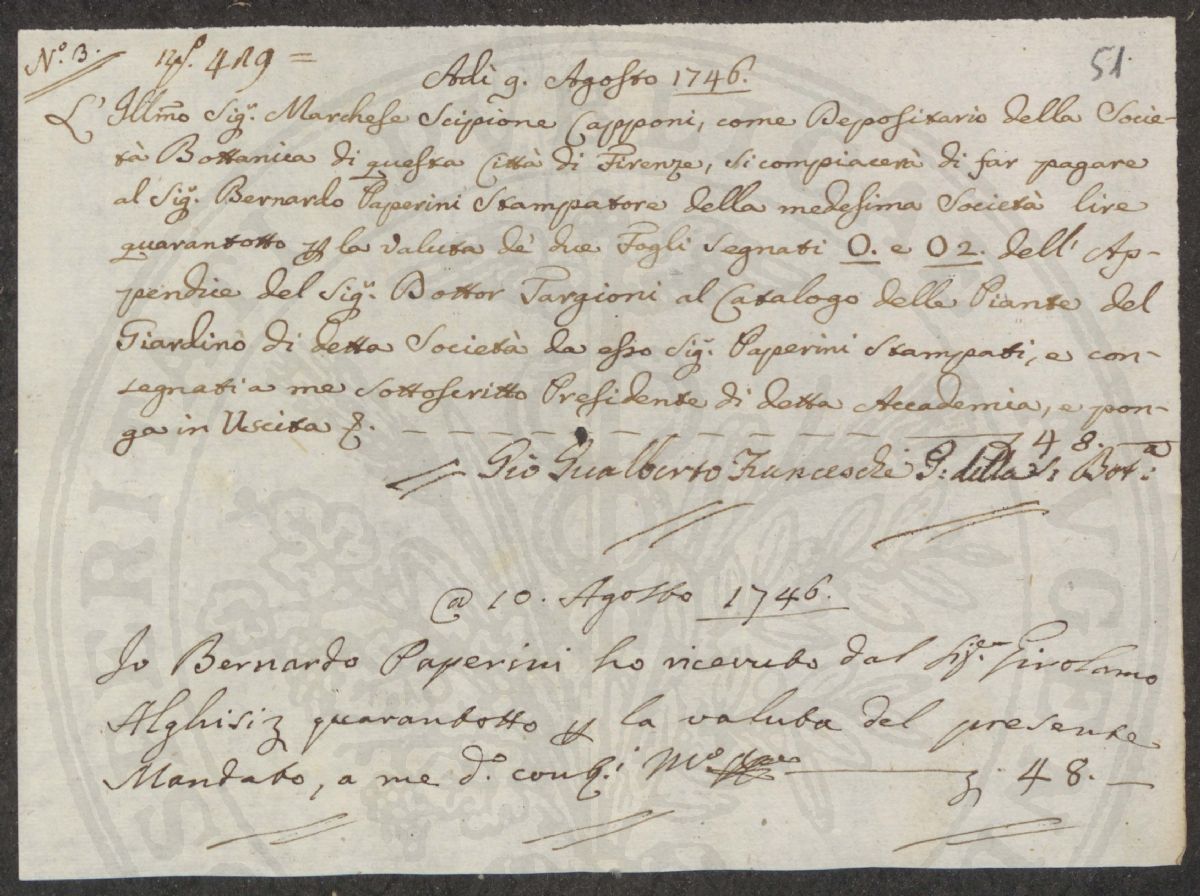 N.º 3. 419 =
51
Adì 9. Agosto 1746.
L'Illmo Sigr. Marchese Scipione Capponi, come Depositario della Socie-
tà Bottanica di questa Città di Firenze, si compiacerà di far pagare
al Sigr. Bernardo Paperini Stampatore della medesima Società lire
quarantotto p la valuta de' due Fogli segnati O. e O2. dell' Ap-
pendice del Sigr. Dottor Targioni al Catalogo delle Piante del
Giardino di detta Società da esso Sigr. Paperini Stampati, e con-
segnati a me sottoscritto Presidente di detta Accademia, e pon-
ga in Uscita 48. —
Gio Gualberto Franceschi P: della S: Bot:a
@ 10. Agosto 1746.
Io Bernardo Paperini ho ricevuto dal Sig.re Girolamo
Alghisi quarantotto p la valuta del presente
Mandato, a me d.º M.º 48. —